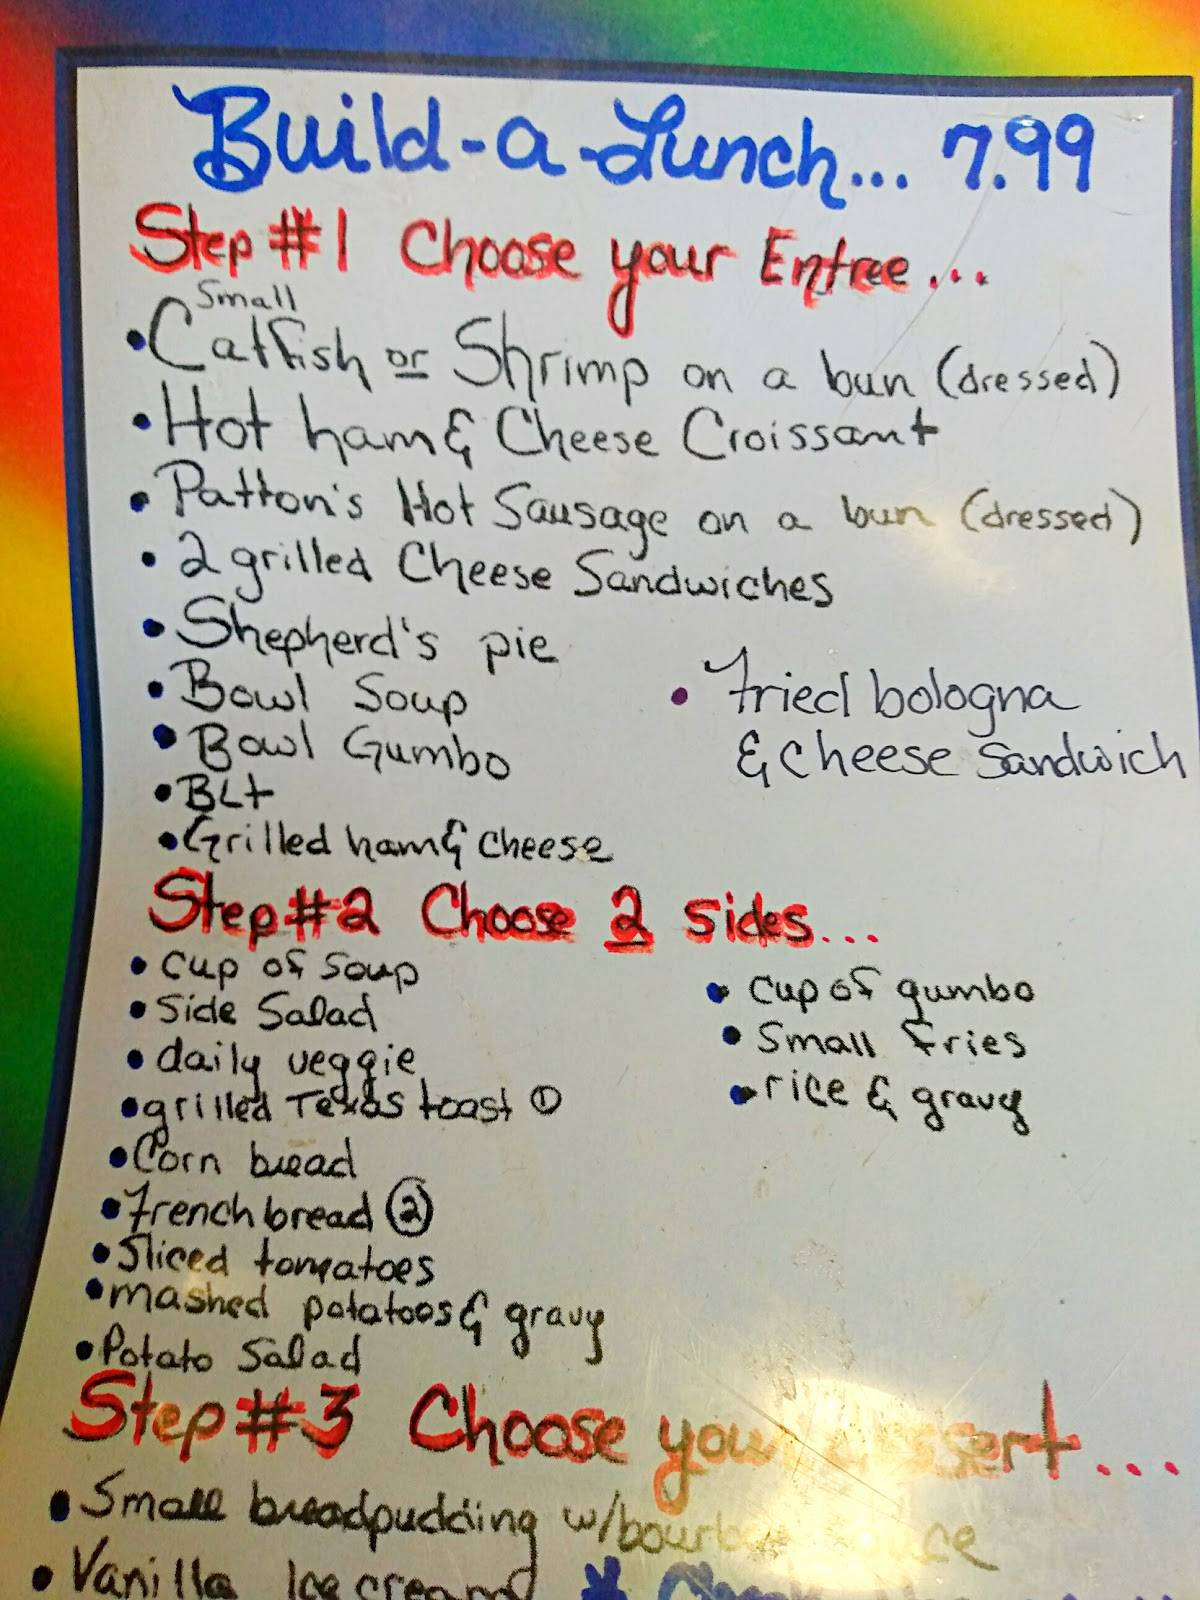 Build-a-Lunch... 7.99
Step #1 Choose your Entree...
Small
• Catfish or Shrimp on a bun (dressed)
• Hot ham & Cheese Croissant
• Patton's Hot Sausage on a bun (dressed)
• 2 grilled Cheese Sandwiches
• Shepherd's pie
• Bowl Soup
• Bowl Gumbo
• BLT
• Grilled ham & cheese
• Fried bologna
& cheese Sandwich
Step #2 Choose 2 sides...
• cup of soup
• Side Salad
• daily veggie
• grilled Texas toast ①
• Corn bread
• French bread ②
• Sliced tomatoes
• mashed potatoes & gravy
• Potato Salad
• cup of gumbo
• Small fries
• rice & gravy
Step #3 Choose your dessert...
• Small breadpudding w/bourbon sauce
• Vanilla Ice cream *